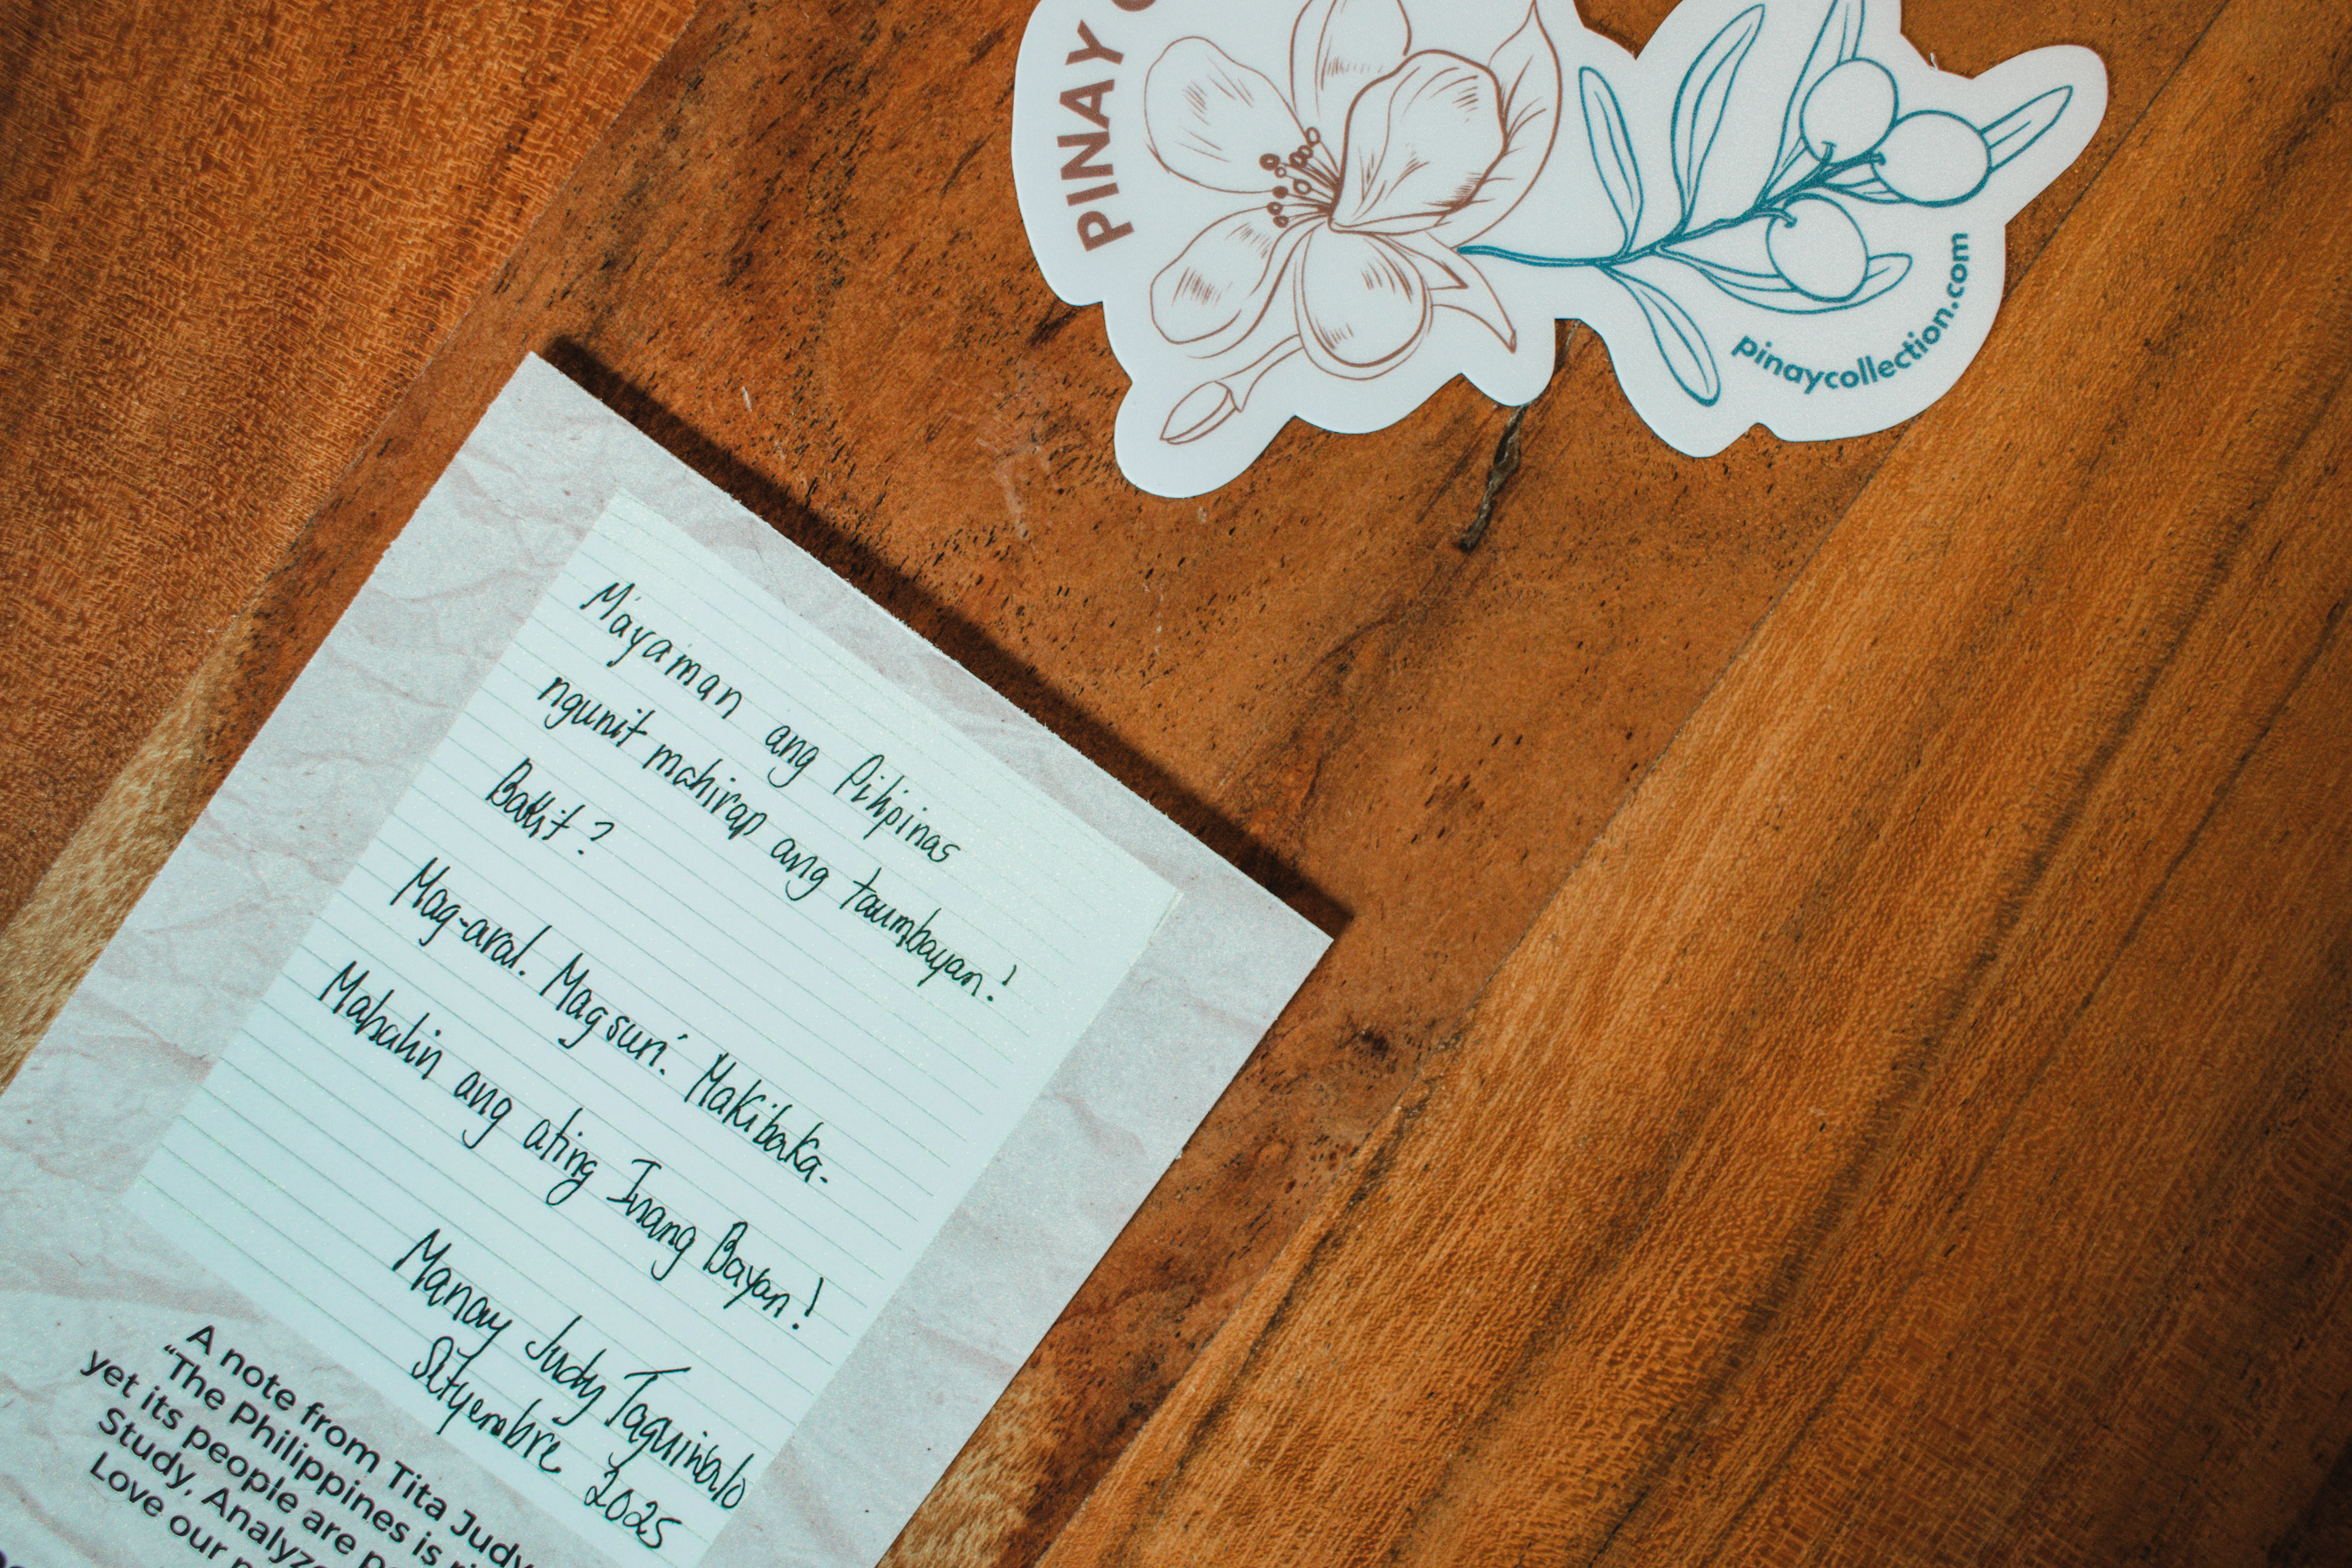 PINAY
pinaycollection.com
Mayaman ang Pilipinas
ngunit mahirap ang taumbayan!
Bakit?
Mag-aral. Magsuri. Makibaka.
Mahalin ang ating Inang Bayan!
Manay Judy Taguiwalo
Setyembre 2025
A note from Tita Judy
"The Philippines is
yet its people are
Study, Analyze
Love our